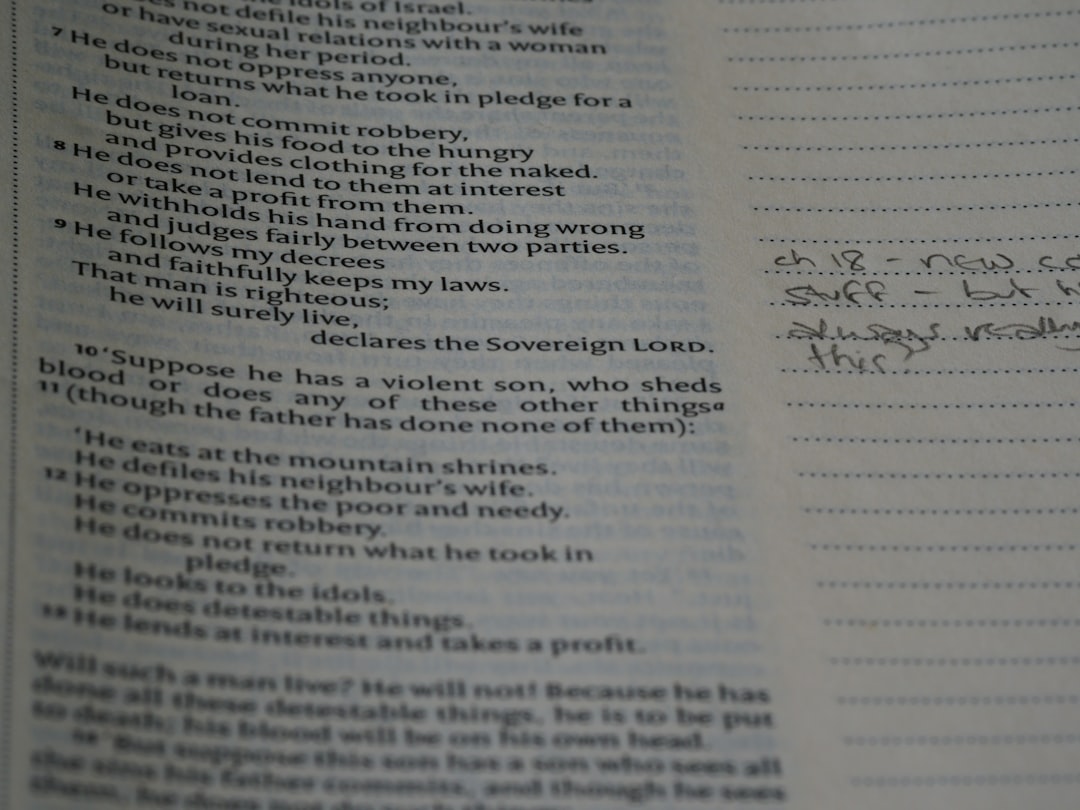 idols of Israel.
not defile his neighbour's wife
or have sexual relations with a woman
during her period.
7 He does not oppress anyone,
but returns what he took in pledge for a
loan.
He does not commit robbery,
but gives his food to the hungry
and provides clothing for the naked.
8 He does not lend to them at interest
or take a profit from them.
He withholds his hand from doing wrong
and judges fairly between two parties.
9 He follows my decrees
and faithfully keeps my laws.
That man is righteous;
he will surely live,
declares the Sovereign LORD.
10 ‘Suppose he has a violent son, who sheds
blood or does any of these other things a
11 (though the father has done none of them):
‘He eats at the mountain shrines.
He defiles his neighbour's wife.
12 He oppresses the poor and needy.
He commits robbery.
He does not return what he took in
pledge.
He looks to the idols.
He does detestable things.
13 He lends at interest and takes a profit.
Will such a man live? He will not! Because he has
done all these detestable things, he is to be put
to death; his blood will be on his own head.
14 ‘But suppose this son has a son who sees all
the sins his father commits, and though he sees
them, he does not do such things:
ch 18 - new
stuff - but
always really
this?